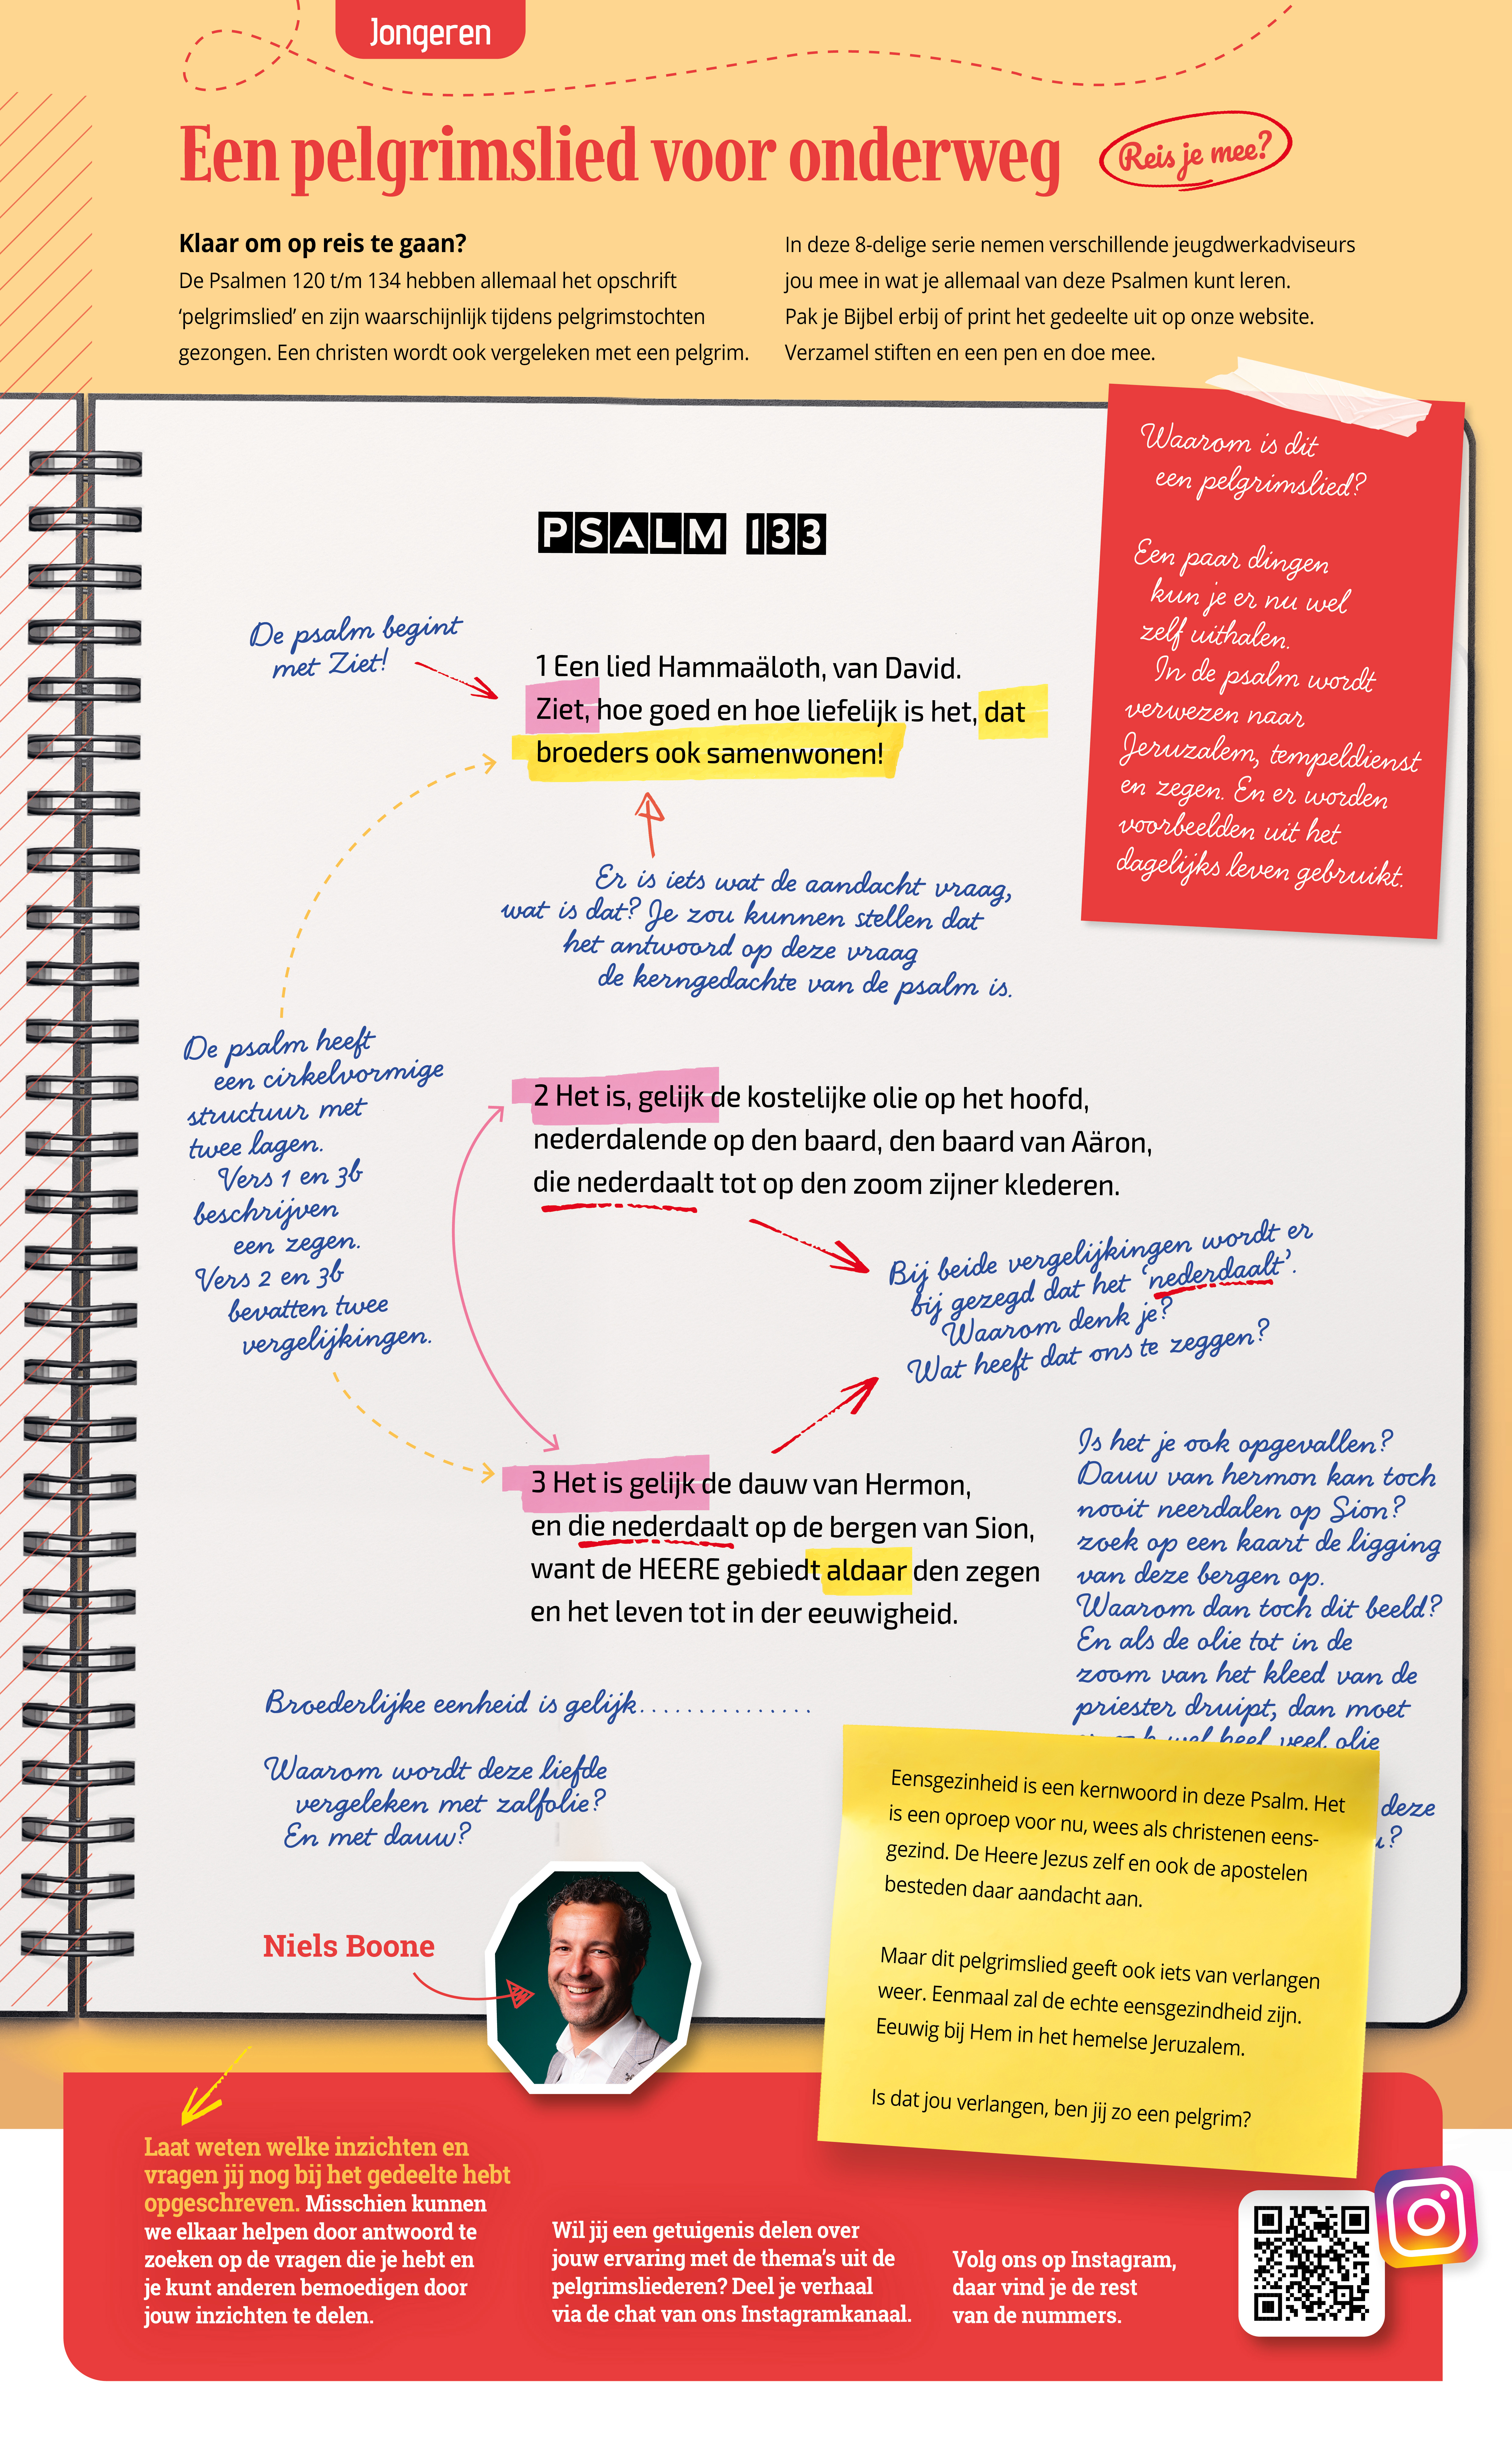 Jongeren
Een pelgrimslied voor onderweg
Reis je mee?
Klaar om op reis te gaan?
De Psalmen 120 t/m 134 hebben allemaal het opschrift
‘pelgrimslied’ en zijn waarschijnlijk tijdens pelgrimstochten
gezongen. Een christen wordt ook vergeleken met een pelgrim.
In deze 8-delige serie nemen verschillende jeugdwerkadviseurs
jou mee in wat je allemaal van deze Psalmen kunt leren.
Pak je Bijbel erbij of print het gedeelte uit op onze website.
Verzamel stiften en een pen en doe mee.
Waarom is dit
een pelgrimslied?
Een paar dingen
kun je er nu wel
zelf uithalen.
In de psalm wordt
verwezen naar
Jeruzalem, tempeldienst
en zegen. En er worden
voorbeelden uit het
dagelijks leven gebruikt.
PSALM 133
De psalm begint
met Ziet!
1 Een lied Hammaäloth, van David.
Ziet, hoe goed en hoe liefelijk is het, dat
broeders ook samenwonen!
Er is iets wat de aandacht vraag,
wat is dat? Je zou kunnen stellen dat
het antwoord op deze vraag
de kerngedachte van de psalm is.
De psalm heeft
een cirkelvormige
structuur met
twee lagen.
Vers 1 en 3b
beschrijven
een zegen.
Vers 2 en 3b
bevatten twee
vergelijkingen.
2 Het is, gelijk de kostelijke olie op het hoofd,
nederdalende op den baard, den baard van Aäron,
die nederdaalt tot op den zoom zijner klederen.
Bij beide vergelijkingen wordt er
bij gezegd dat het ‘nederdaalt’.
Waarom denk je?
Wat heeft dat ons te zeggen?
3 Het is gelijk de dauw van Hermon,
en die nederdaalt op de bergen van Sion,
want de HEERE gebiedt aldaar den zegen
en het leven tot in der eeuwigheid.
Is het je ook opgevallen?
Dauw van hermon kan toch
nooit neerdalen op Sion?
zoek op een kaart de ligging
van deze bergen op.
Waarom dan toch dit beeld?
En als de olie tot in de
zoom van het kleed van de
priester druipt, dan moet
wel heel veel olie
deze
Broederlijke eenheid is gelijk...............
Waarom wordt deze liefde
vergeleken met zalfolie?
En met dauw?
Niels Boone
Eensgezinheid is een kernwoord in deze Psalm. Het
is een oproep voor nu, wees als christenen eens-
gezind. De Heere Jezus zelf en ook de apostelen
besteden daar aandacht aan.
Maar dit pelgrimslied geeft ook iets van verlangen
weer. Eenmaal zal de echte eensgezindheid zijn.
Eeuwig bij Hem in het hemelse Jeruzalem.
Is dat jou verlangen, ben jij zo een pelgrim?
Laat weten welke inzichten en
vragen jij nog bij het gedeelte hebt
opgeschreven. Misschien kunnen
we elkaar helpen door antwoord te
zoeken op de vragen die je hebt en
je kunt anderen bemoedigen door
jouw inzichten te delen.
Wil jij een getuigenis delen over
jouw ervaring met de thema’s uit de
pelgrimsliederen? Deel je verhaal
via de chat van ons Instagramkanaal.
Volg ons op Instagram,
daar vind je de rest
van de nummers.